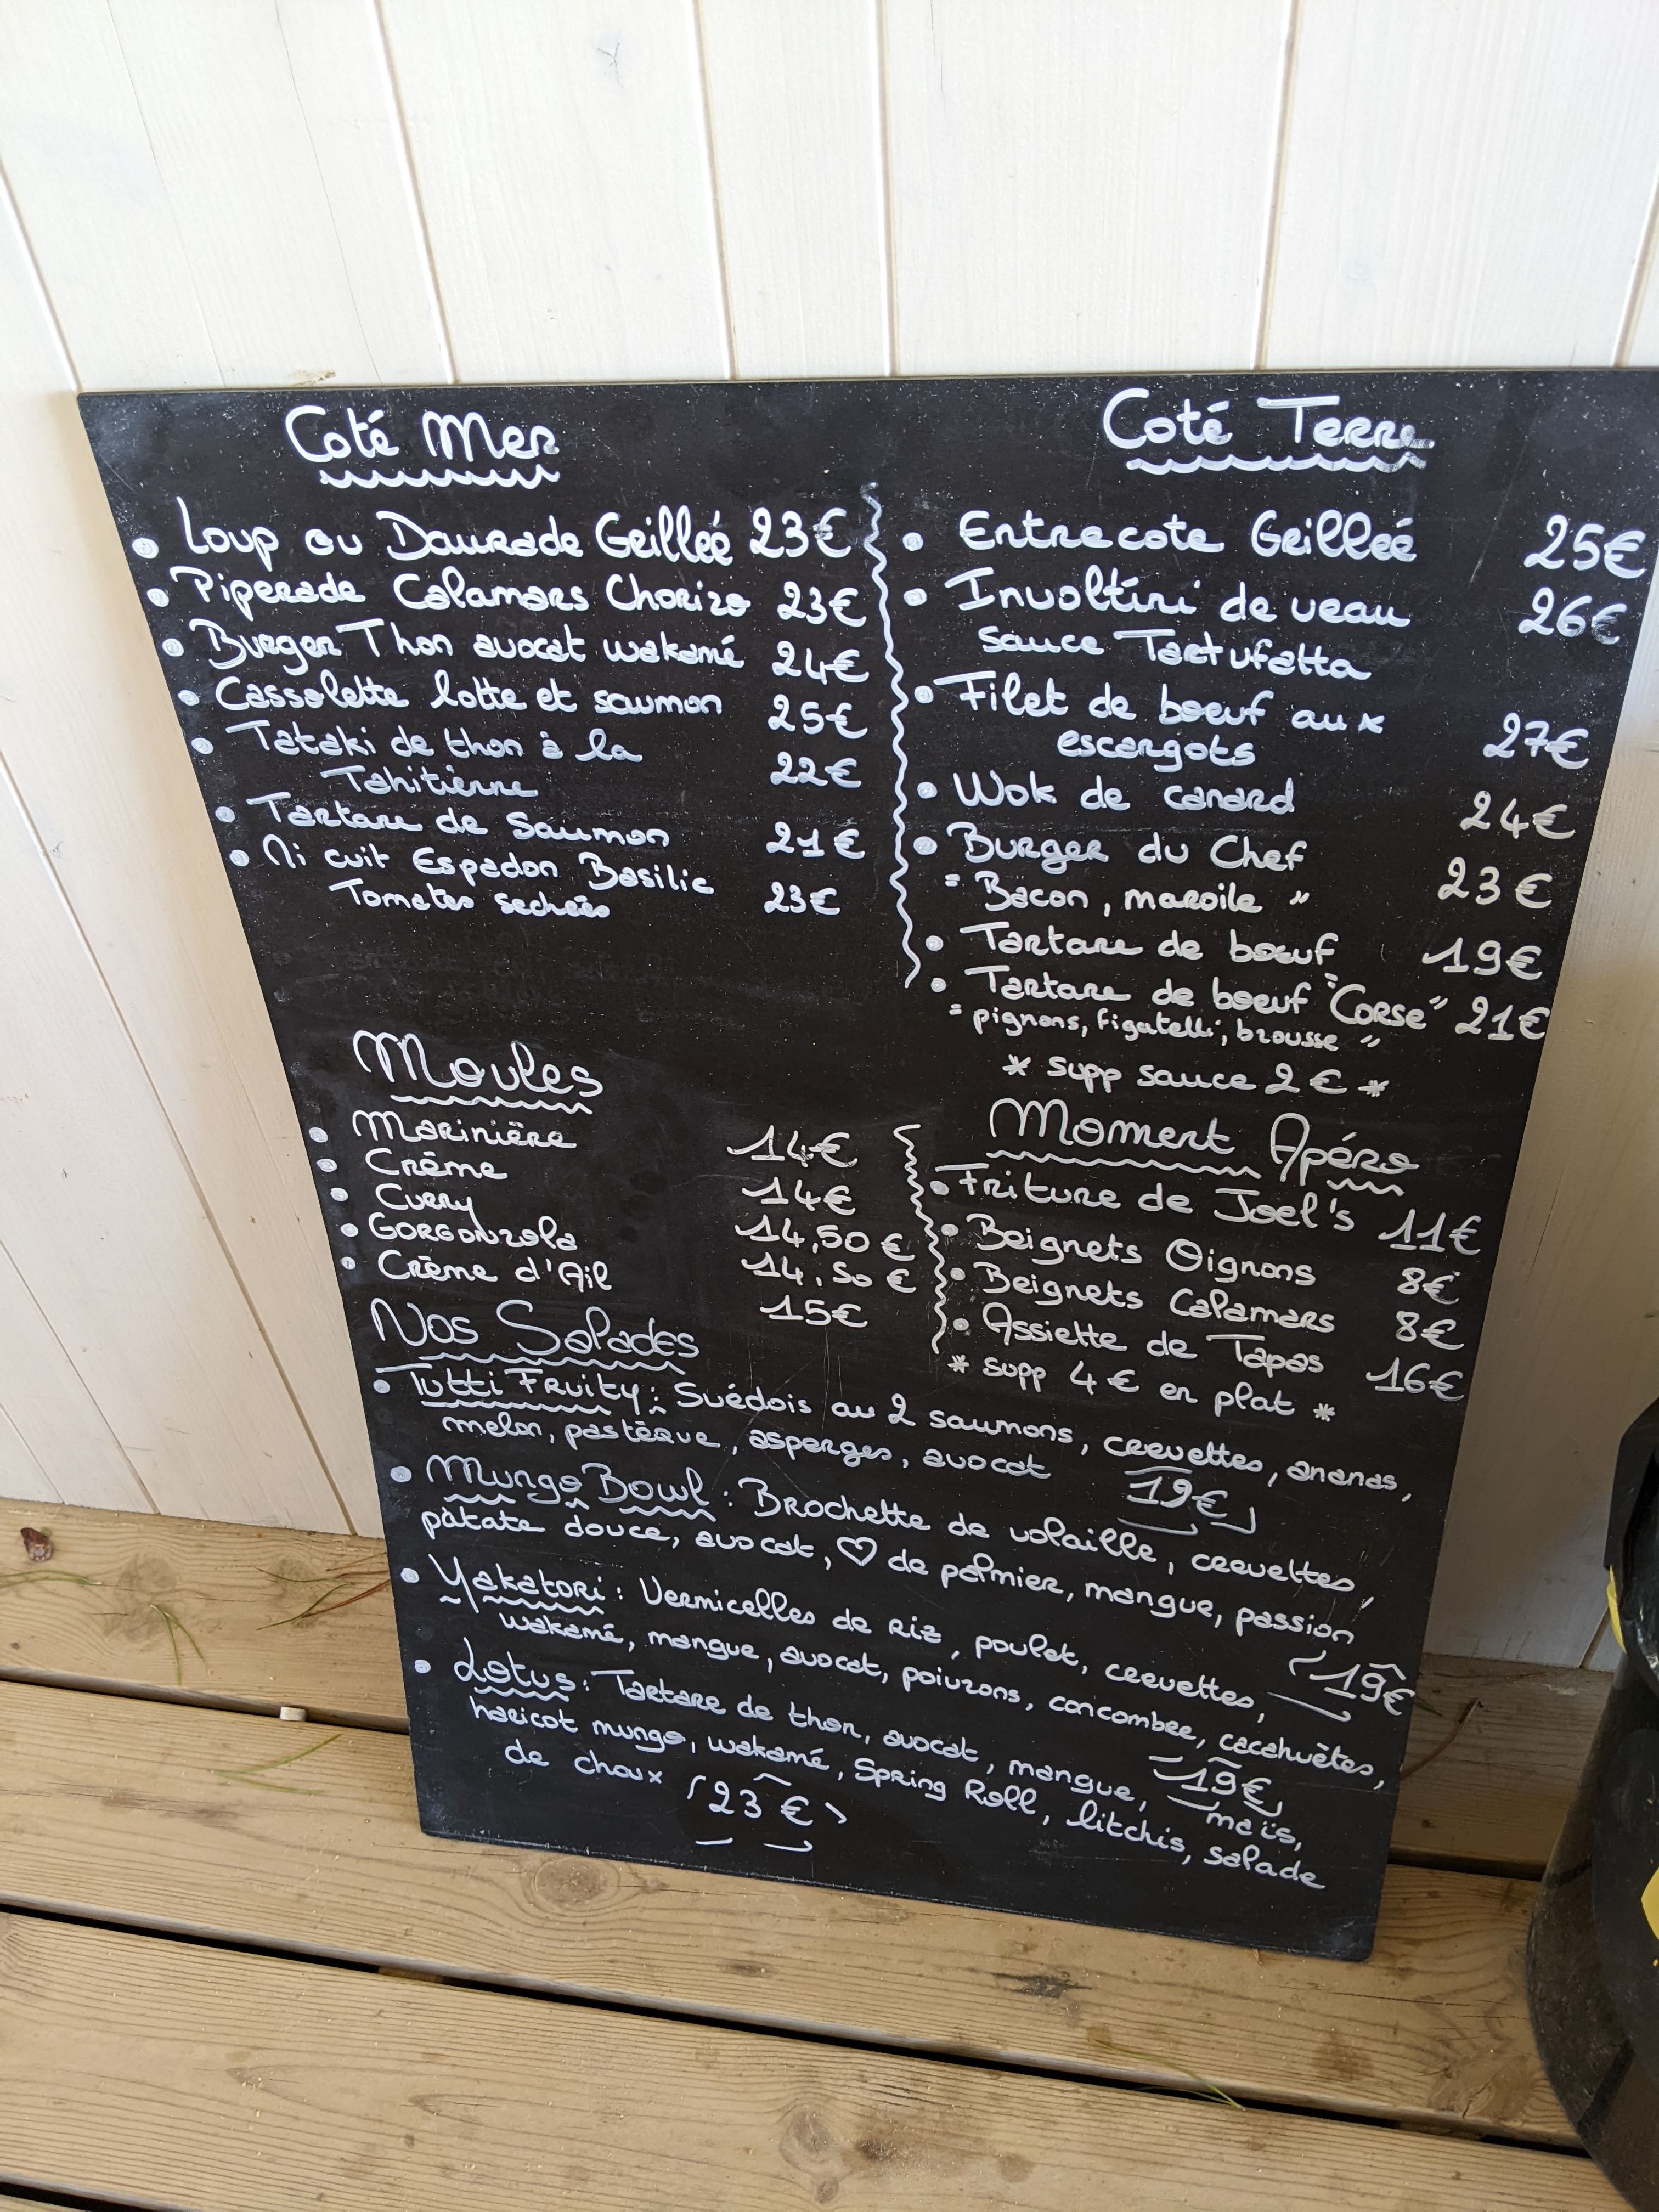 Coté Mer
• Loup ou Daurade Grilleé 23€
• Piperade Calamars Chorizo 23€
• Burger Thon avocat wakamé 24€
• Cassolette lotte et saumon 25€
• Tataki de thon à la
Tahitienne 22€
• Tartare de Saumon 21€
• Mi cuit Espadon Basilic
Tomates sechées 23€
Coté Terre
• Entrecote Grilleé 25€
• Involtini de veau 26€
sauce Tartufatta
• Filet de boeuf aux
escargots 27€
• Wok de canard 24€
• Burger du Chef 23€
" Bacon, maroile "
• Tartare de boeuf 19€
• Tartare de boeuf "Corse" 21€
" pignons, figatelli, brousse "
* supp sauce 2€ *
Moules
• Marinière 14€
• Crème 14€
• Curry 14,50€
• Gorgonzola 14,50€
• Crème d'Ail 15€
Moment Apéro
• Friture de Joel's 11€
• Beignets Oignons 8€
• Beignets Calamars 8€
• Assiette de Tapas 16€
* supp 4€ en plat *
Nos Salades
• Tutti Fruity : Suédois au 2 saumons, crevettes, ananas,
melon, pastèque, asperges, avocat 19€
• Mungo Bowl : Brochette de volaille, crevettes,
patate douce, avocat, ♡ de palmier, mangue, passion
19€
• Yakatori : Vermicelles de riz, poulet, crevettes,
wakamé, mangue, avocat, poivrons, concombre, cacahuètes,
19€
• Lotus : Tartare de thon, avocat, mangue, maïs,
haricot mungo, wakamé, Spring Roll, litchis, salade
de choux 23€